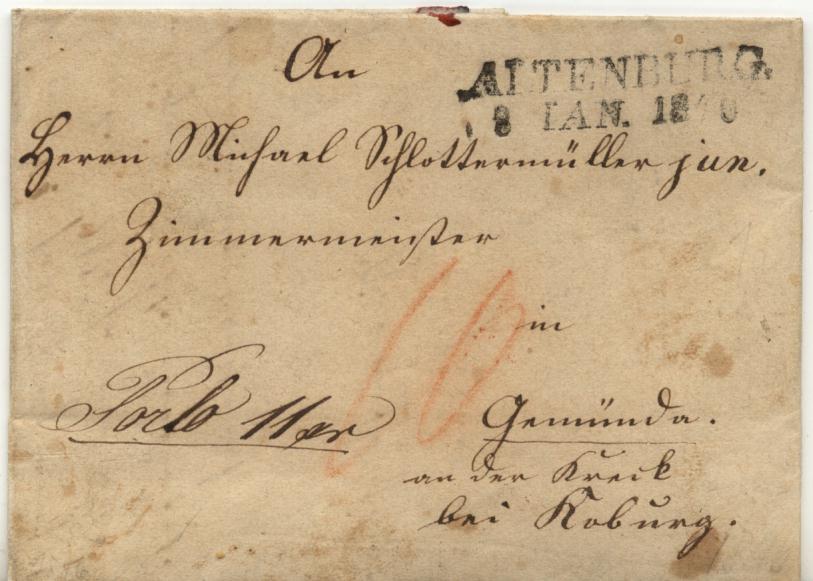 An
ALTENBURG.
8 IAN. 1840
Herrn Michael Schlottermüller jun.
Zimmermeister
in
10
Porto 11 xr
Gemünda.
an der Kreck
bei Koburg.